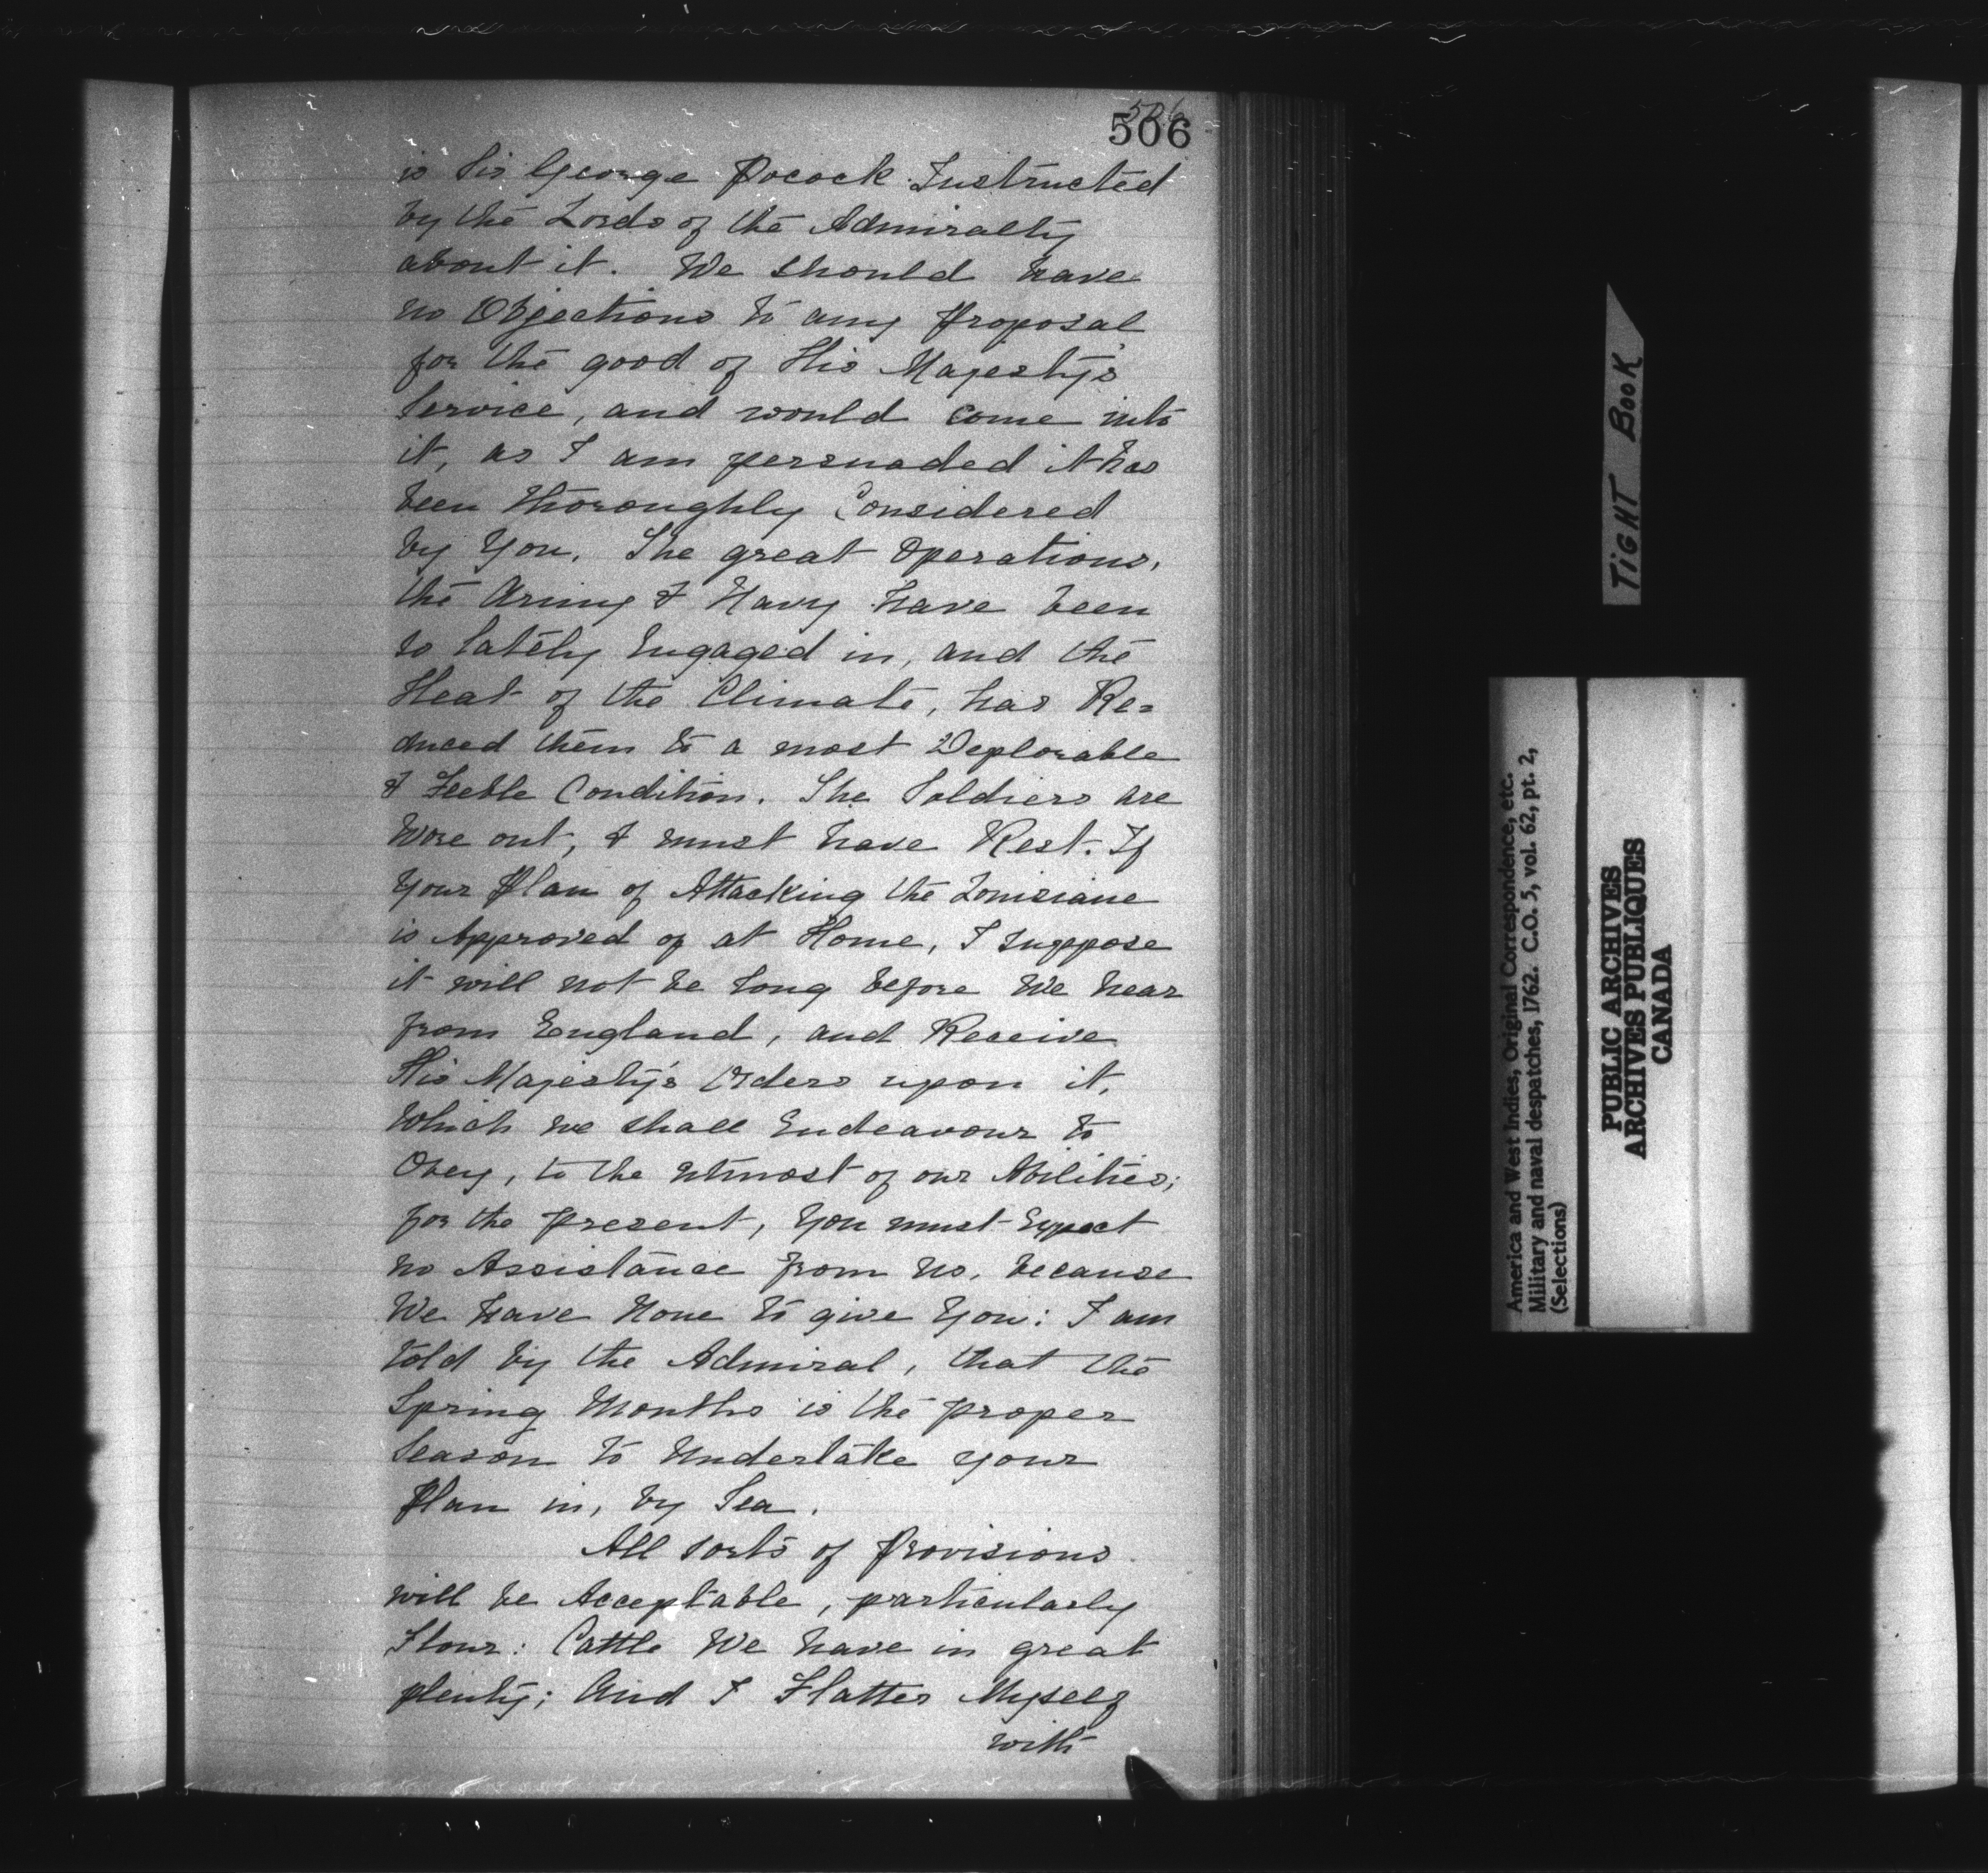 506
506
is Sir George Pocock Instructed
by the Lords of the Admiralty
about it. We should have
no Objections to any Proposal
for the good of His Majesty's
Service, and would come into
it, as I am persuaded it has
been thoroughly Considered
by You. The great Operations,
the Army & Navy have been
so lately Engaged in, and the
Heat of the Climate, has Re=
duced them to a most Deplorable
& Feeble Condition. The Soldiers are
Wore out, & must have Rest. If
Your Plan of Attacking the Louisiane
is Approved of at Home, I suppose
it will not be long before We hear
from England, and Receive
His Majesty's Orders upon it,
Which we shall Endeavour to
Obey, to the utmost of our Abilities;
for the present, You must Expect
no Assistance from Us, because
We have None to give You: I am
told by the Admiral, that the
Spring Months is the proper
Season to Undertake your
Plan in, by Sea.
All sorts of Provisions
will be Acceptable, particularly
Flour: Cattle We have in great
plenty; And I Flatter Myself
with
TIGHT BOOK
America and West Indies, Original Correspondence, etc.
Military and naval despatches, 1762. C.O. 5, vol. 62, pt. 2,
(Selections)
PUBLIC ARCHIVES
ARCHIVES PUBLIQUES
CANADA